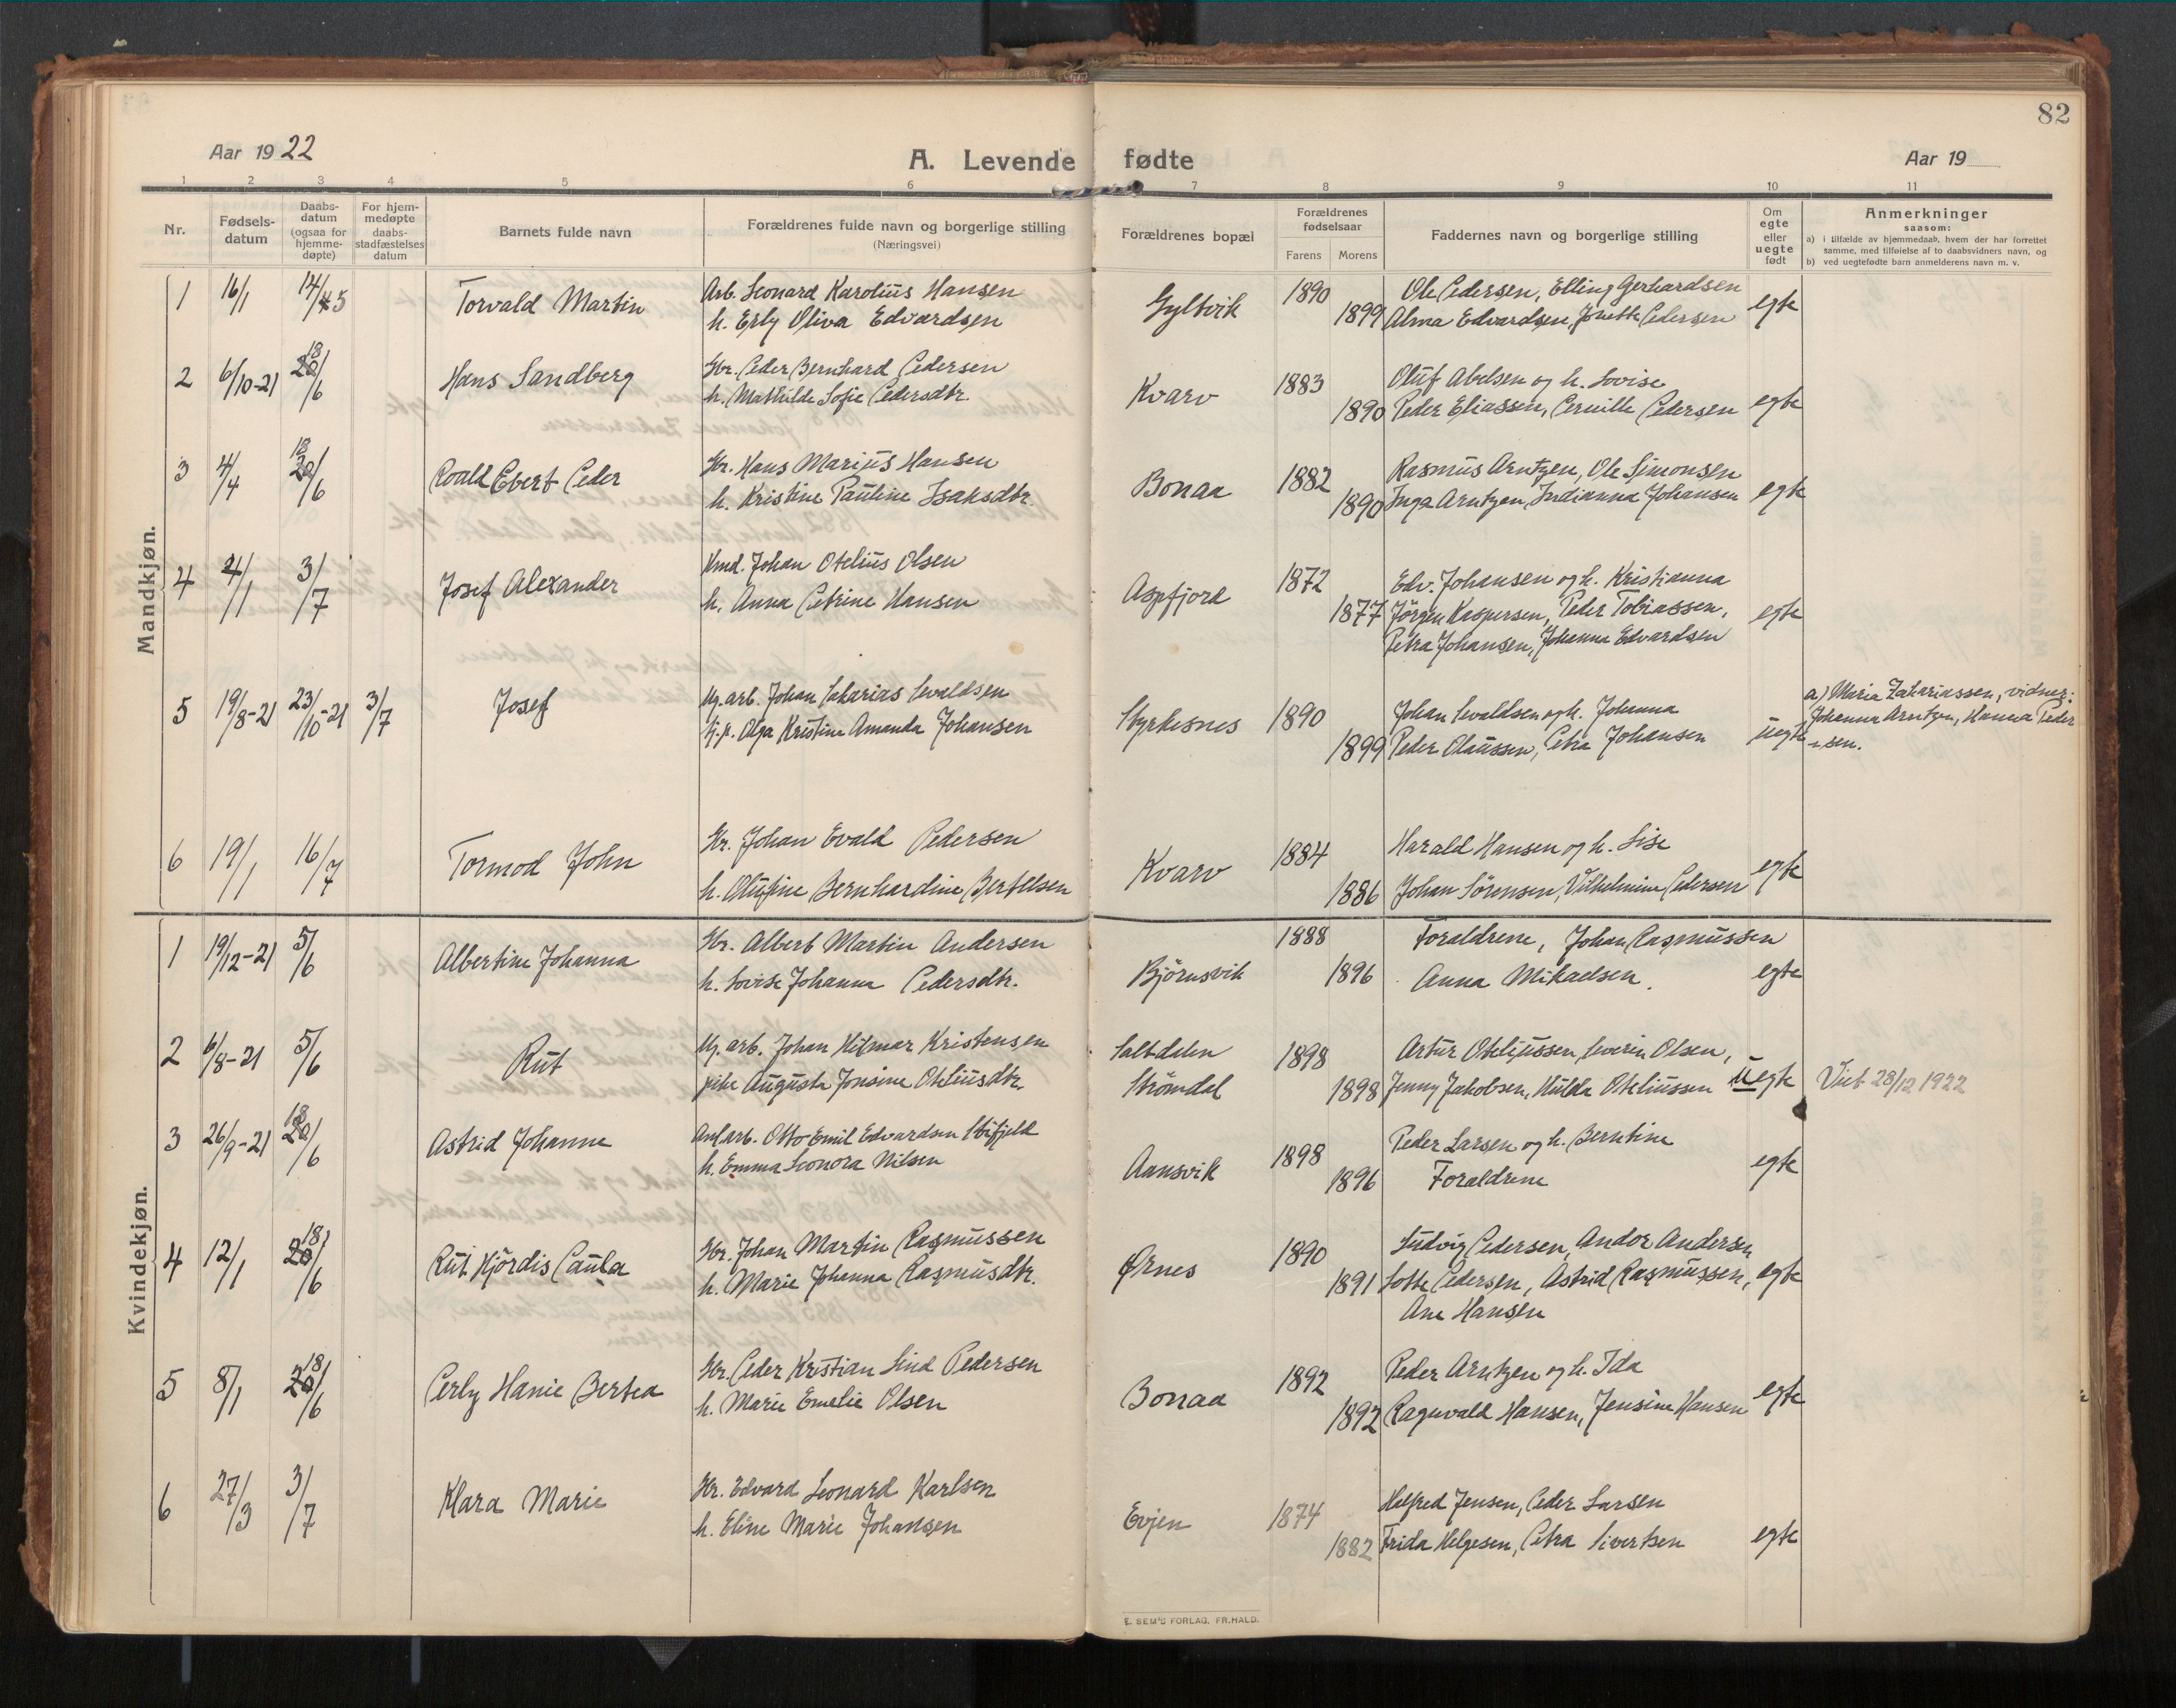 82
Aar 19 22
A. Levende fødte
Aar 19
1 2 3 4 5 6 7 8 9 10 11
Nr.
Fødsels-
datum
Daabs-
datum
(ogsaa for
hjemme-
døpte)
For hjem-
medøpte
daabs-
stadfæstelses
datum
Barnets fulde navn
Forældrenes fulde navn og borgerlige stilling
(Næringsvei)
Forældrenes bopæl
Forældrenes
fødselsaar
Farens Morens
Faddernes navn og borgerlige stilling
Om
egte
eller
uegte
født
Anmerkninger
saasom:
a) i tilfælde av hjemmedaab, hvem der har forrettet
samme, med tilføielse af to daabsvidners navn, og
b) ved uegtefødte barn anmelderens navn m. v.
Mandkjøn.
1 16/1 14/5 Torvald Martin Arb. Leonard Karolius Hansen Gyltvik 1890 Ole Pedersen, Elling Gerhardsen egte
h. Erly Oliva Edvardsen 1899 Alma Edvardsen, Jonette Pedersen
2 6/10-21 18/6 Hans Sandberg Gbr. Peder Bernhard Pedersen Kvarv 1883 Oluf Abelsen og h. Lovise
h. Mathilde Sofie Pedersdtr. 1890 Peder Eliassen, Pernille Pedersen egte
3 4/4 18/6 Roald Ebert Peder Gbr. Hans Marius Hansen Bonaa 1882 Rasmus Arntzen, Ole Simonsen
h. Kristine Pauline Isaksdtr. 1890 Inga Arntzen, Indianna Johansen egte
4 4/1 3/7 Josef Alexander Kmd. Johan Otelius Olsen Aspfjord 1872 Edv. Johansen og h. Kristianna
h. Anna Petrine Hansen 1877 Jörgen Kaspersen, Peder Tobiassen, egte
Petra Johansen, Johanna Edvardsen
5 19/8-21 23/10-21 3/7 Josef Ug. arb. Johan Sakarias Evaldsen Styrkesnes 1890 Johan Evaldsen og h. Johanna
Olga Kristine Amanda Johansen 1899 Peder Olaussen, Petra Johansen uegte
a) Maria Zakariassen, vidner:
Johanna Arntzen, Hanna Peder
-sen.
6 19/1 16/7 Tormod John Gbr. Johan Evald Pedersen Kvarv 1884 Harald Hansen og h. Lise egte
h. Olufine Bernhardine Bertelsen 1886 Johan Sörensen, Vilhelmine Pedersen
Kvindekjøn.
1 19/12-21 5/6 Albertine Johanna Gbr. Albert Martin Andersen Björnsvik 1888 Foraldrene, Johan Rasmussen
h. Lovise Johanna Pedersdtr. 1896 Anna Mikaelsen. egte
2 6/8-21 5/6 Rut Ug. arb. Johan Hilmar Kristensen Saltdalen 1898 Artur Oteliussen, Severin Olsen,
pike Augusta Jonsine Oteliusdtr. Strömdal 1898 Jenny Jakobsen, Hulda Oteliussen uegte Viet 28/12 1922
3 26/9-21 18/6 Astrid Johanne Anl.arb. Otto Emil Edvardsen Stifjeld Aansvik 1898 Peder Larsen og h. Berntine
h. Emma Leonora Nilsen 1896 Foraldrene egte
4 12/1 18/6 Rut Hjördis Paula Gbr. Johan Martin Rasmussen Ørnes 1890 Ludvig Pedersen, Andor Andersen
h. Marie Johanna Rasmusdtr. 1891 Lotte Pedersen, Astrid Rasmussen, egte
Ane Hansen
5 8/1 18/6 Perly Hanie Bertea Gbr. Peder Kristian Lind Pedersen Bonaa 1892 Peder Arntzen og h. Ida egte
h. Marie Emelie Olsen 1892 Ragnvald Hansen, Jensine Hansen
6 27/3 3/7 Klara Marie Gbr. Edvard Leonard Karlsen Evjen 1874 Halfred Jensen, Peder Larsen
h. Eline Marie Johansen 1882 Frida Helgesen, Petra Sivertsen egte
E. SEM'S FORLAG. FR.HALD.